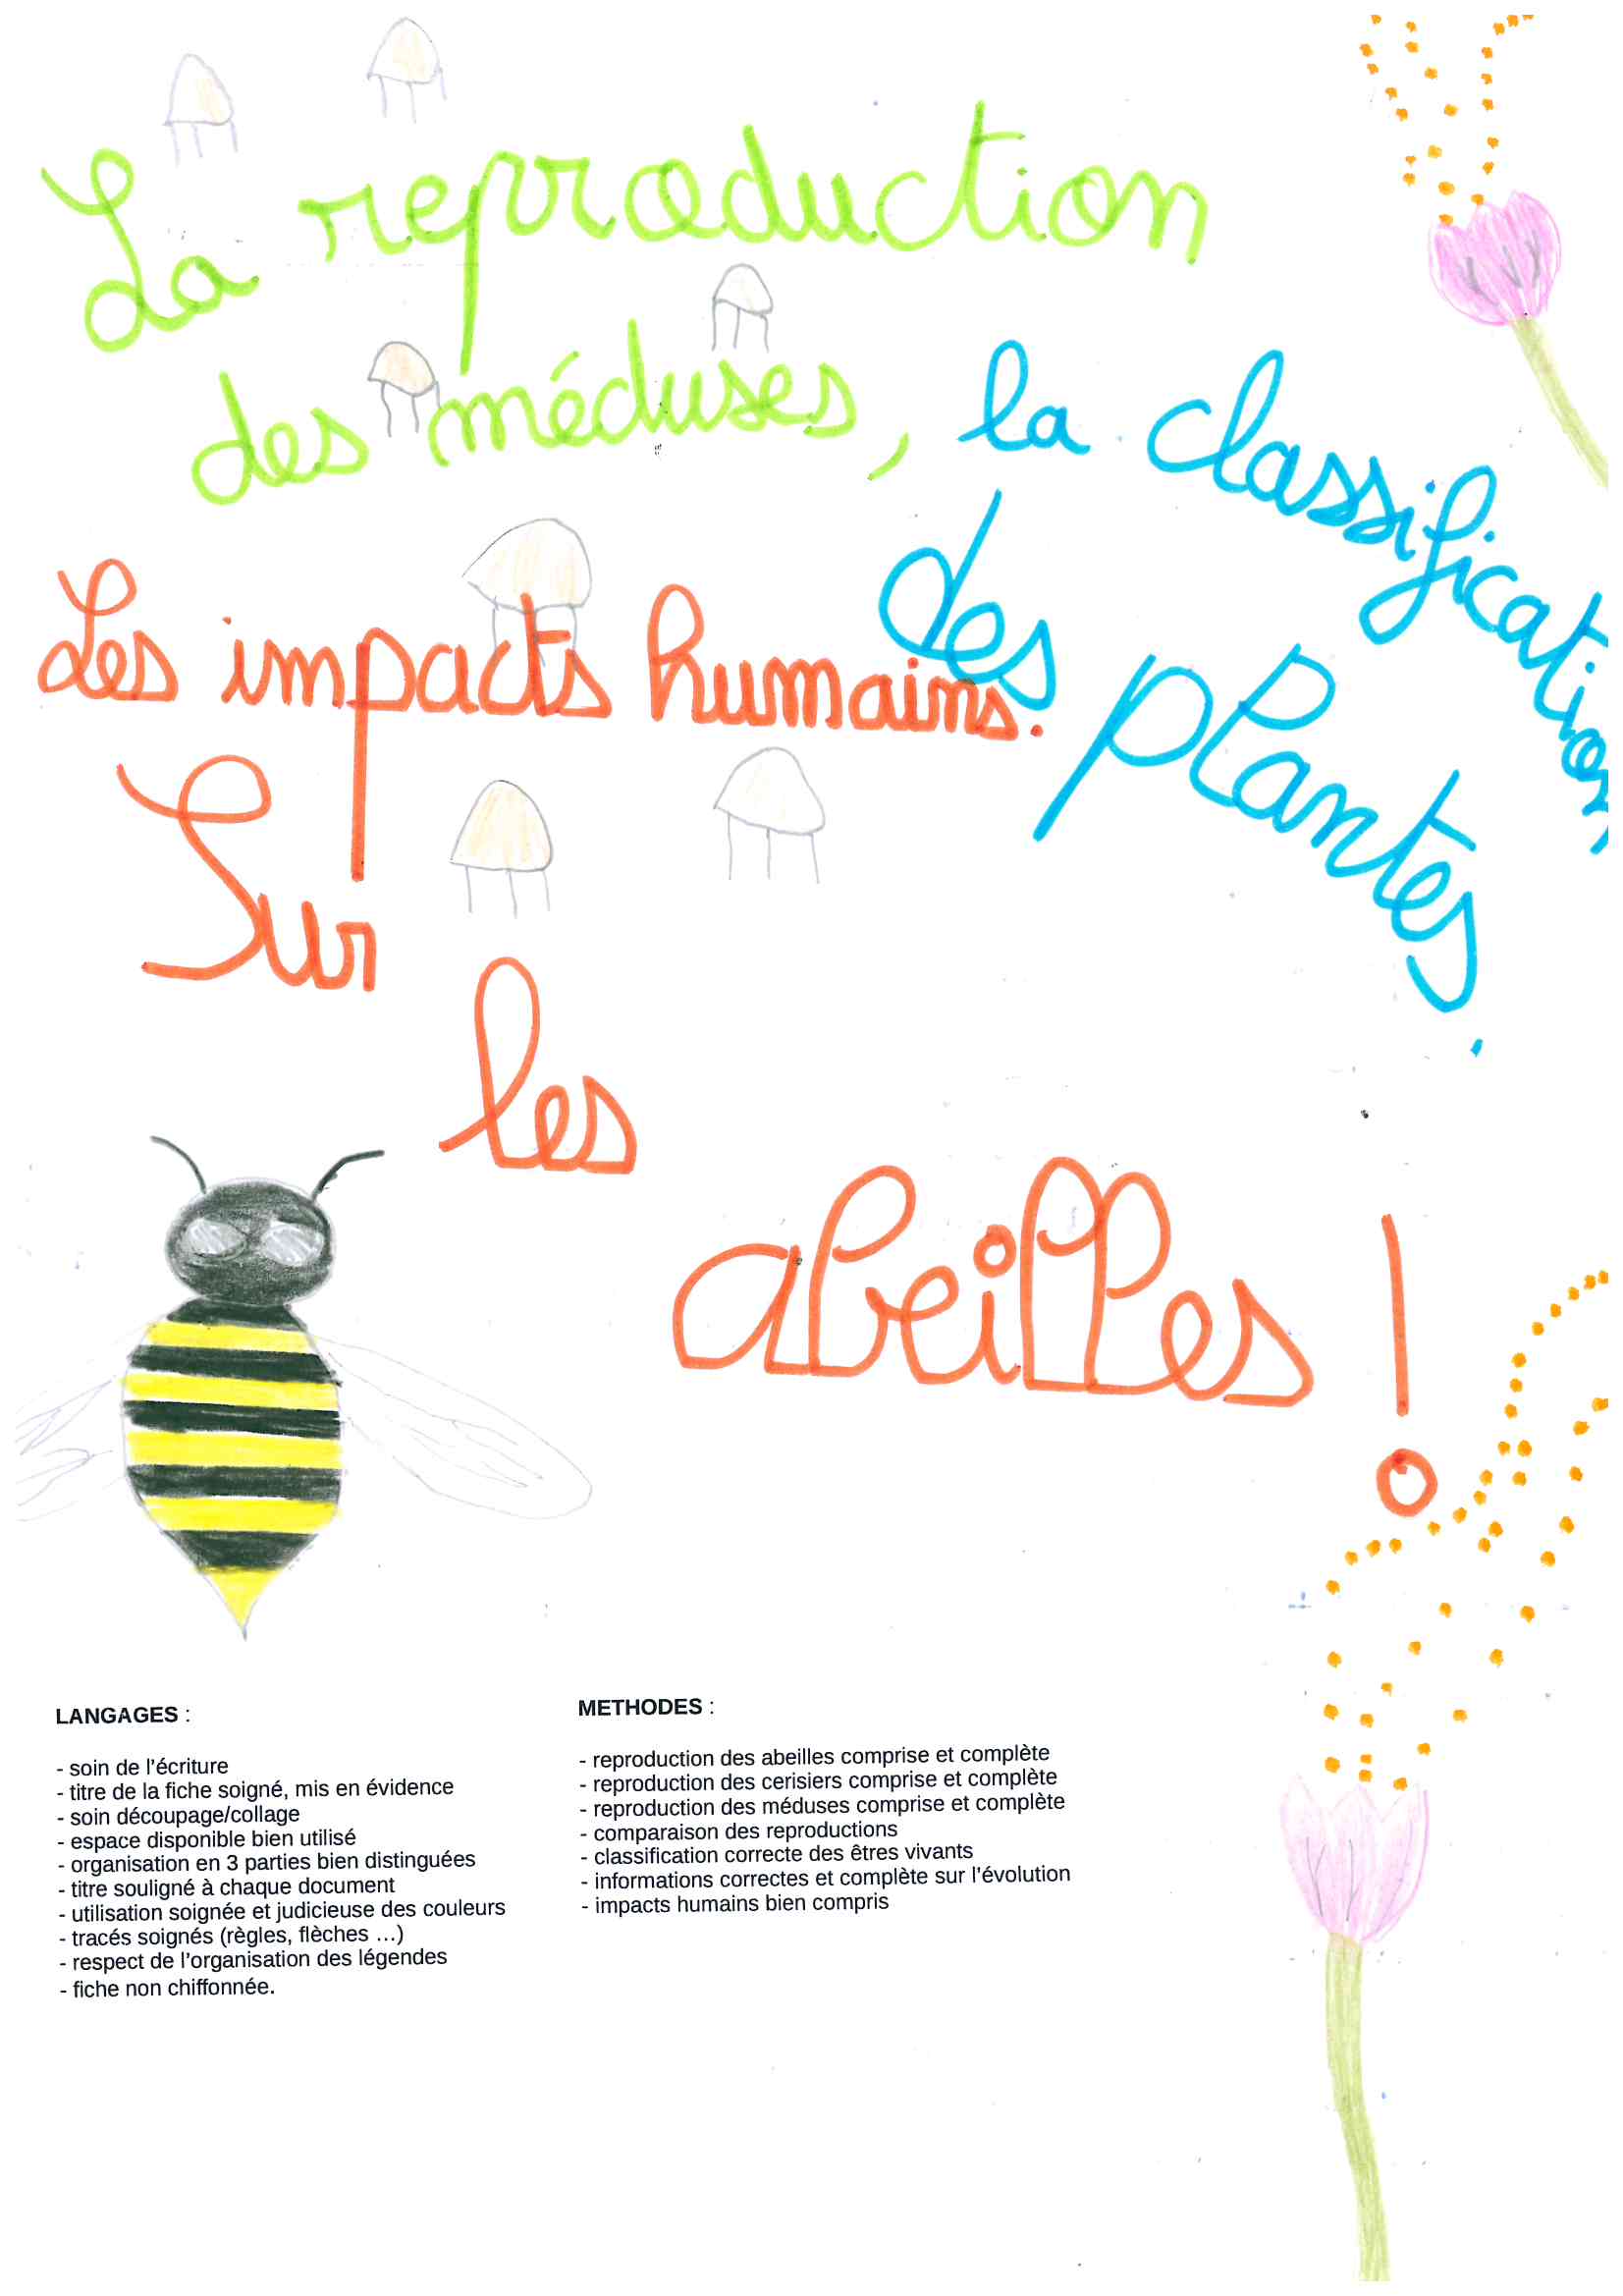 La reproduction
des méduses, la classification
des plantes.
Les impacts humains.
Sur
les
abeilles !
LANGAGES :
- soin de l'écriture
- titre de la fiche soigné, mis en évidence
- soin découpage/collage
- espace disponible bien utilisé
- organisation en 3 parties bien distinguées
- titre souligné à chaque document
- utilisation soignée et judicieuse des couleurs
- tracés soignés (règles, flèches ...)
- respect de l'organisation des légendes
- fiche non chiffonnée.
METHODES :
- reproduction des abeilles comprise et complète
- reproduction des cerisiers comprise et complète
- reproduction des méduses comprise et complète
- comparaison des reproductions
- classification correcte des êtres vivants
- informations correctes et complète sur l'évolution
- impacts humains bien compris